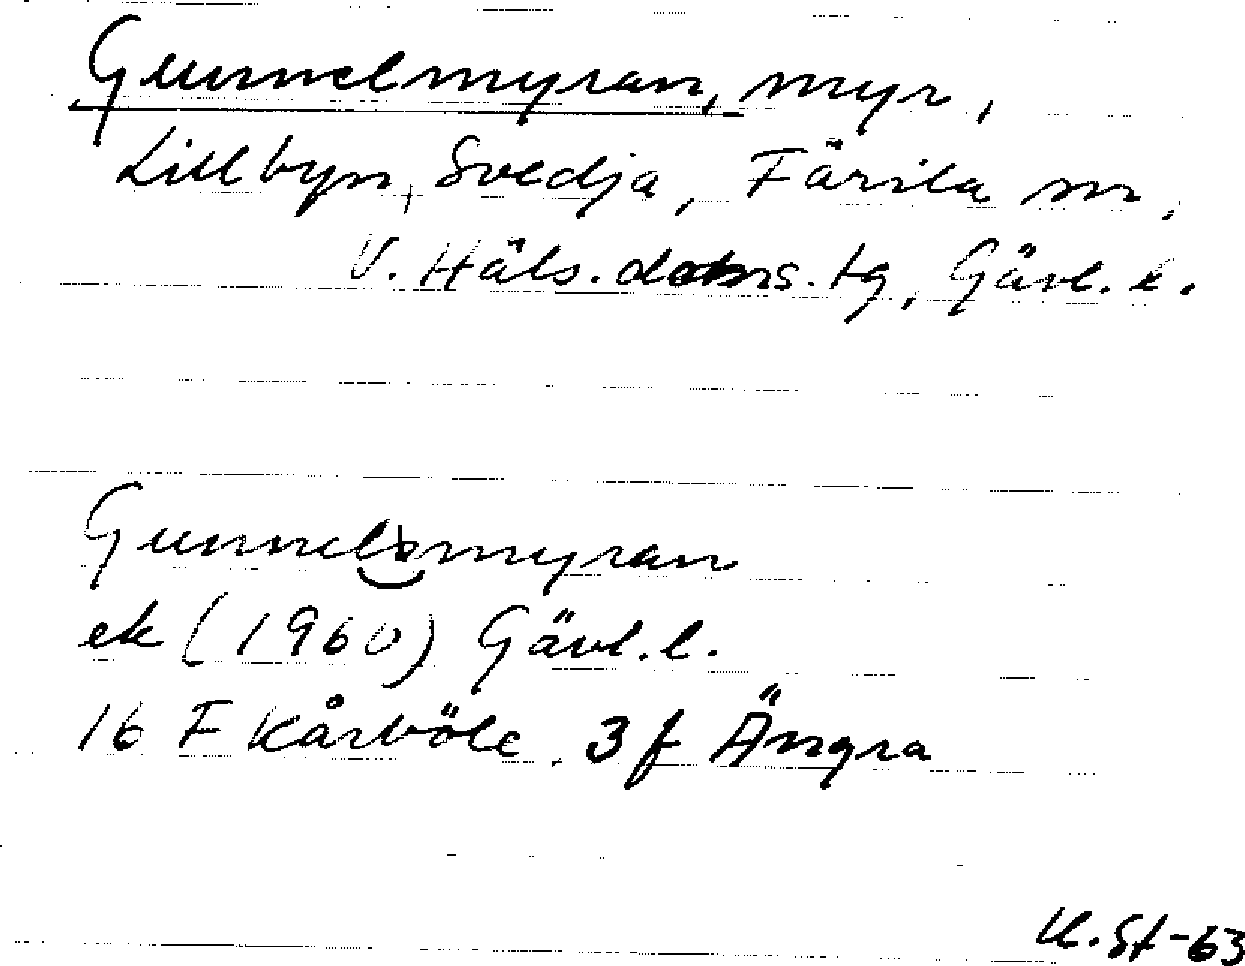 Gunnelmyran, myr,
Lillbyn, Svedja, Färila sn,
V. Häls. doms. tg, Gävl. l.
Gunnelmyran
ek (1960) Gävl. l.
16 F Kårböle, 3 f Ängra
U. St-63